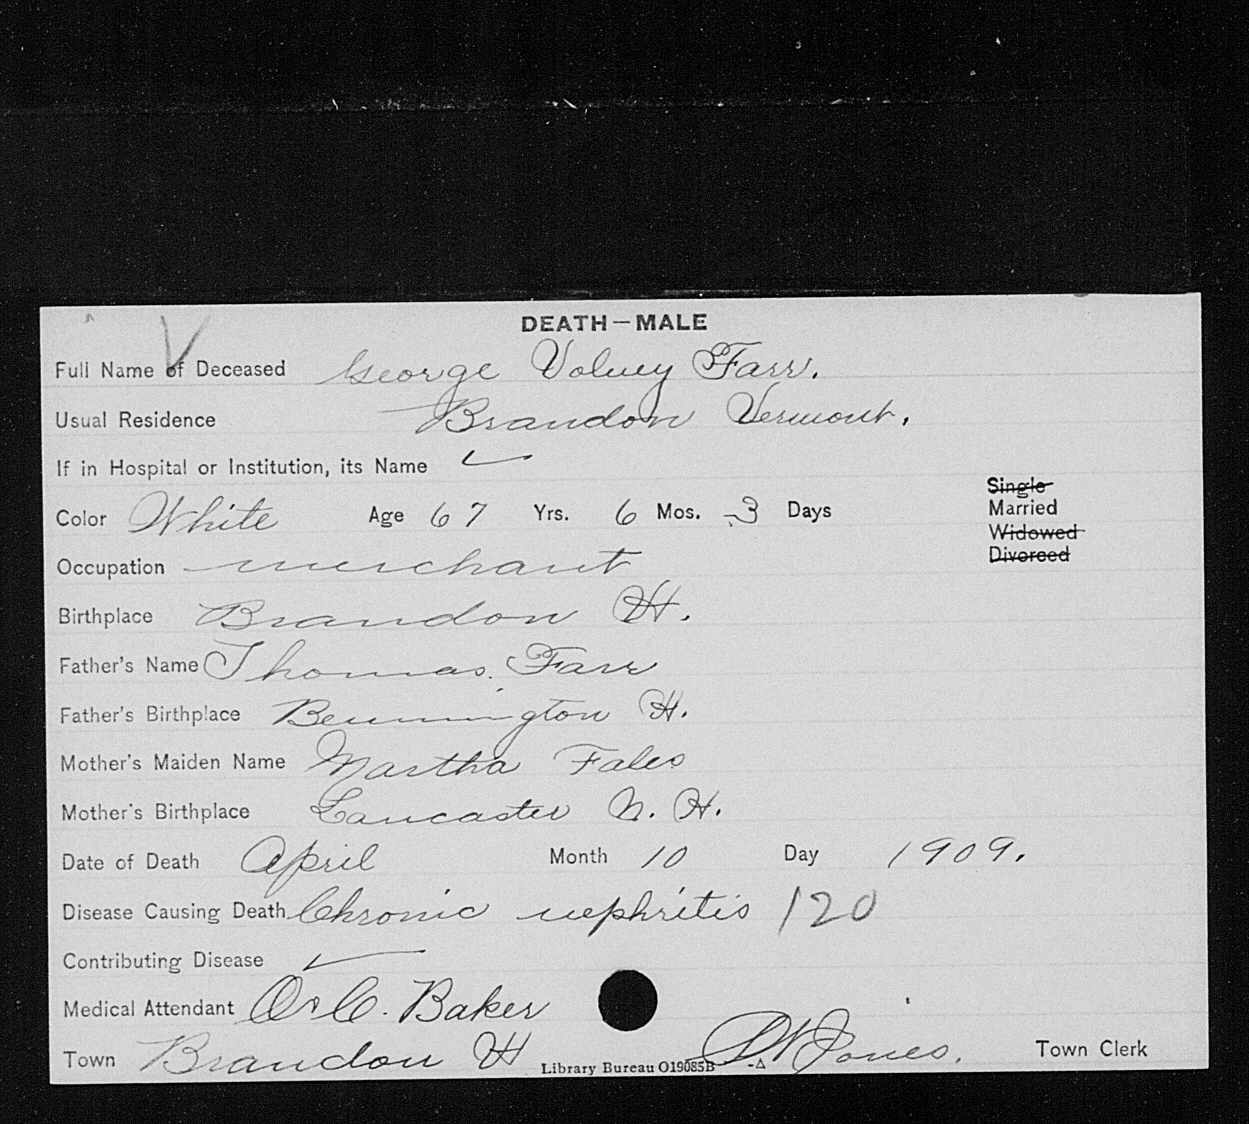 DEATH—MALE
Full Name of Deceased George Volney Farr.
Usual Residence Brandon Vermont.
If in Hospital or Institution, its Name ✓
Color White Age 67 Yrs. 6 Mos. 3 Days
Single
Married
Widowed
Divorced
Occupation merchant
Birthplace Brandon Vt.
Father's Name Thomas Farr
Father's Birthplace Bennington Vt.
Mother's Maiden Name Martha Fales
Mother's Birthplace Lancaster N. H.
Date of Death April Month 10 Day 1909.
Disease Causing Death Chronic nephritis 120
Contributing Disease ✓
Medical Attendant Baker
Town Brandon Vt Jones. Town Clerk
Library Bureau O19085B